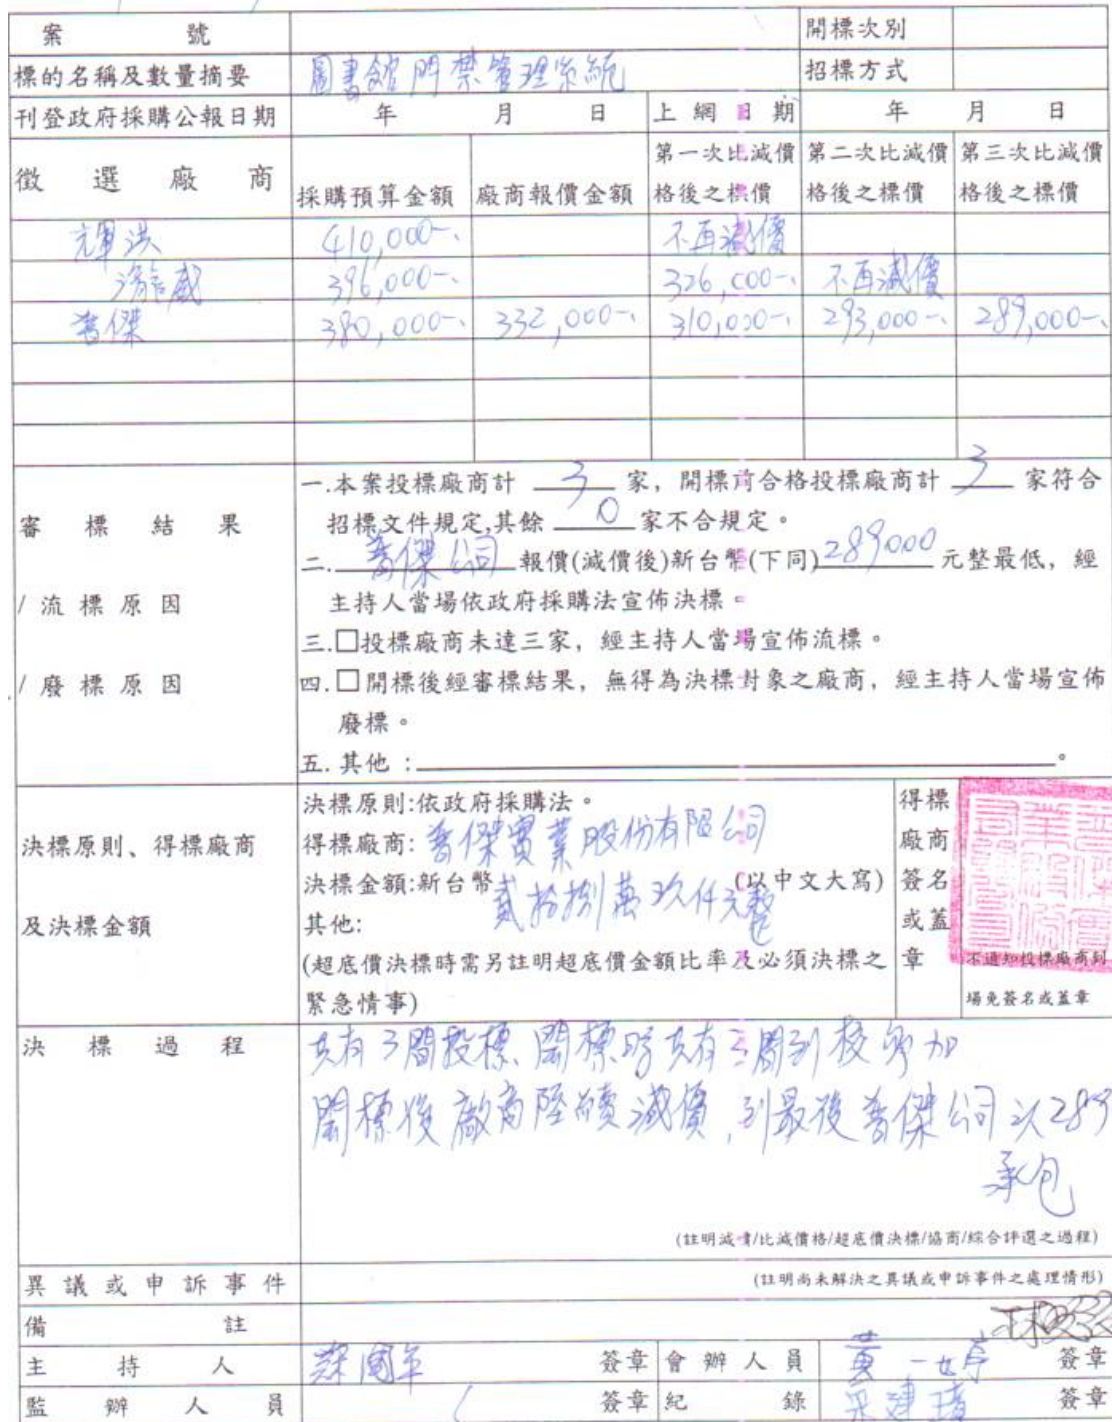 案 號 開標次別
標的名稱及數量摘要 圖書館門禁管理系統 招標方式
刊登政府採購公報日期 年 月 日 上網日期 年 月 日
徵選廠商 採購預算金額 廠商報價金額 第一次比減價格後之標價 第二次比減價格後之標價 第三次比減價格後之標價
輝洪 410,000-、 不再減價
396,000-、 326,000-、 不再減價
普傑 380,000-、 332,000-、 310,000-、 293,000-、 289,000-、
審標結果
/流標原因
/廢標原因
一.本案投標廠商計 3 家，開標前合格投標廠商計 3 家符合
招標文件規定,其餘 0 家不合規定。
二.普傑公司 報價(減價後)新台幣(下同)289000 元整最低，經
主持人當場依政府採購法宣佈決標。
三.□投標廠商未達三家，經主持人當場宣佈流標。
四.□開標後經審標結果，無得為決標對象之廠商，經主持人當場宣佈
廢標。
五.其他：。
決標原則、得標廠商
及決標金額
決標原則:依政府採購法。
得標廠商:普傑實業股份有限公司
決標金額:新台幣貳拾捌萬玖仟元整(以中文大寫)
其他:
(超底價決標時需另註明超底價金額比率及必須決標之
緊急情事)
得標
廠商
簽名
或蓋
章
不通知投標廠商到
場免簽名或蓋章
決標過程
共有3間投標、開標時共有三間到校參加
開標後廠商陸續減價,到最後普傑公司以289
承包
(註明減價/比減價格/超底價決標/協商/綜合評選之過程)
異議或申訴事件 (註明尚未解決之異議或申訴事件之處理情形)
備註
主持人 國 簽章 會辦人員 黃一婷 簽章
監辦人員 簽章 紀錄 建 簽章